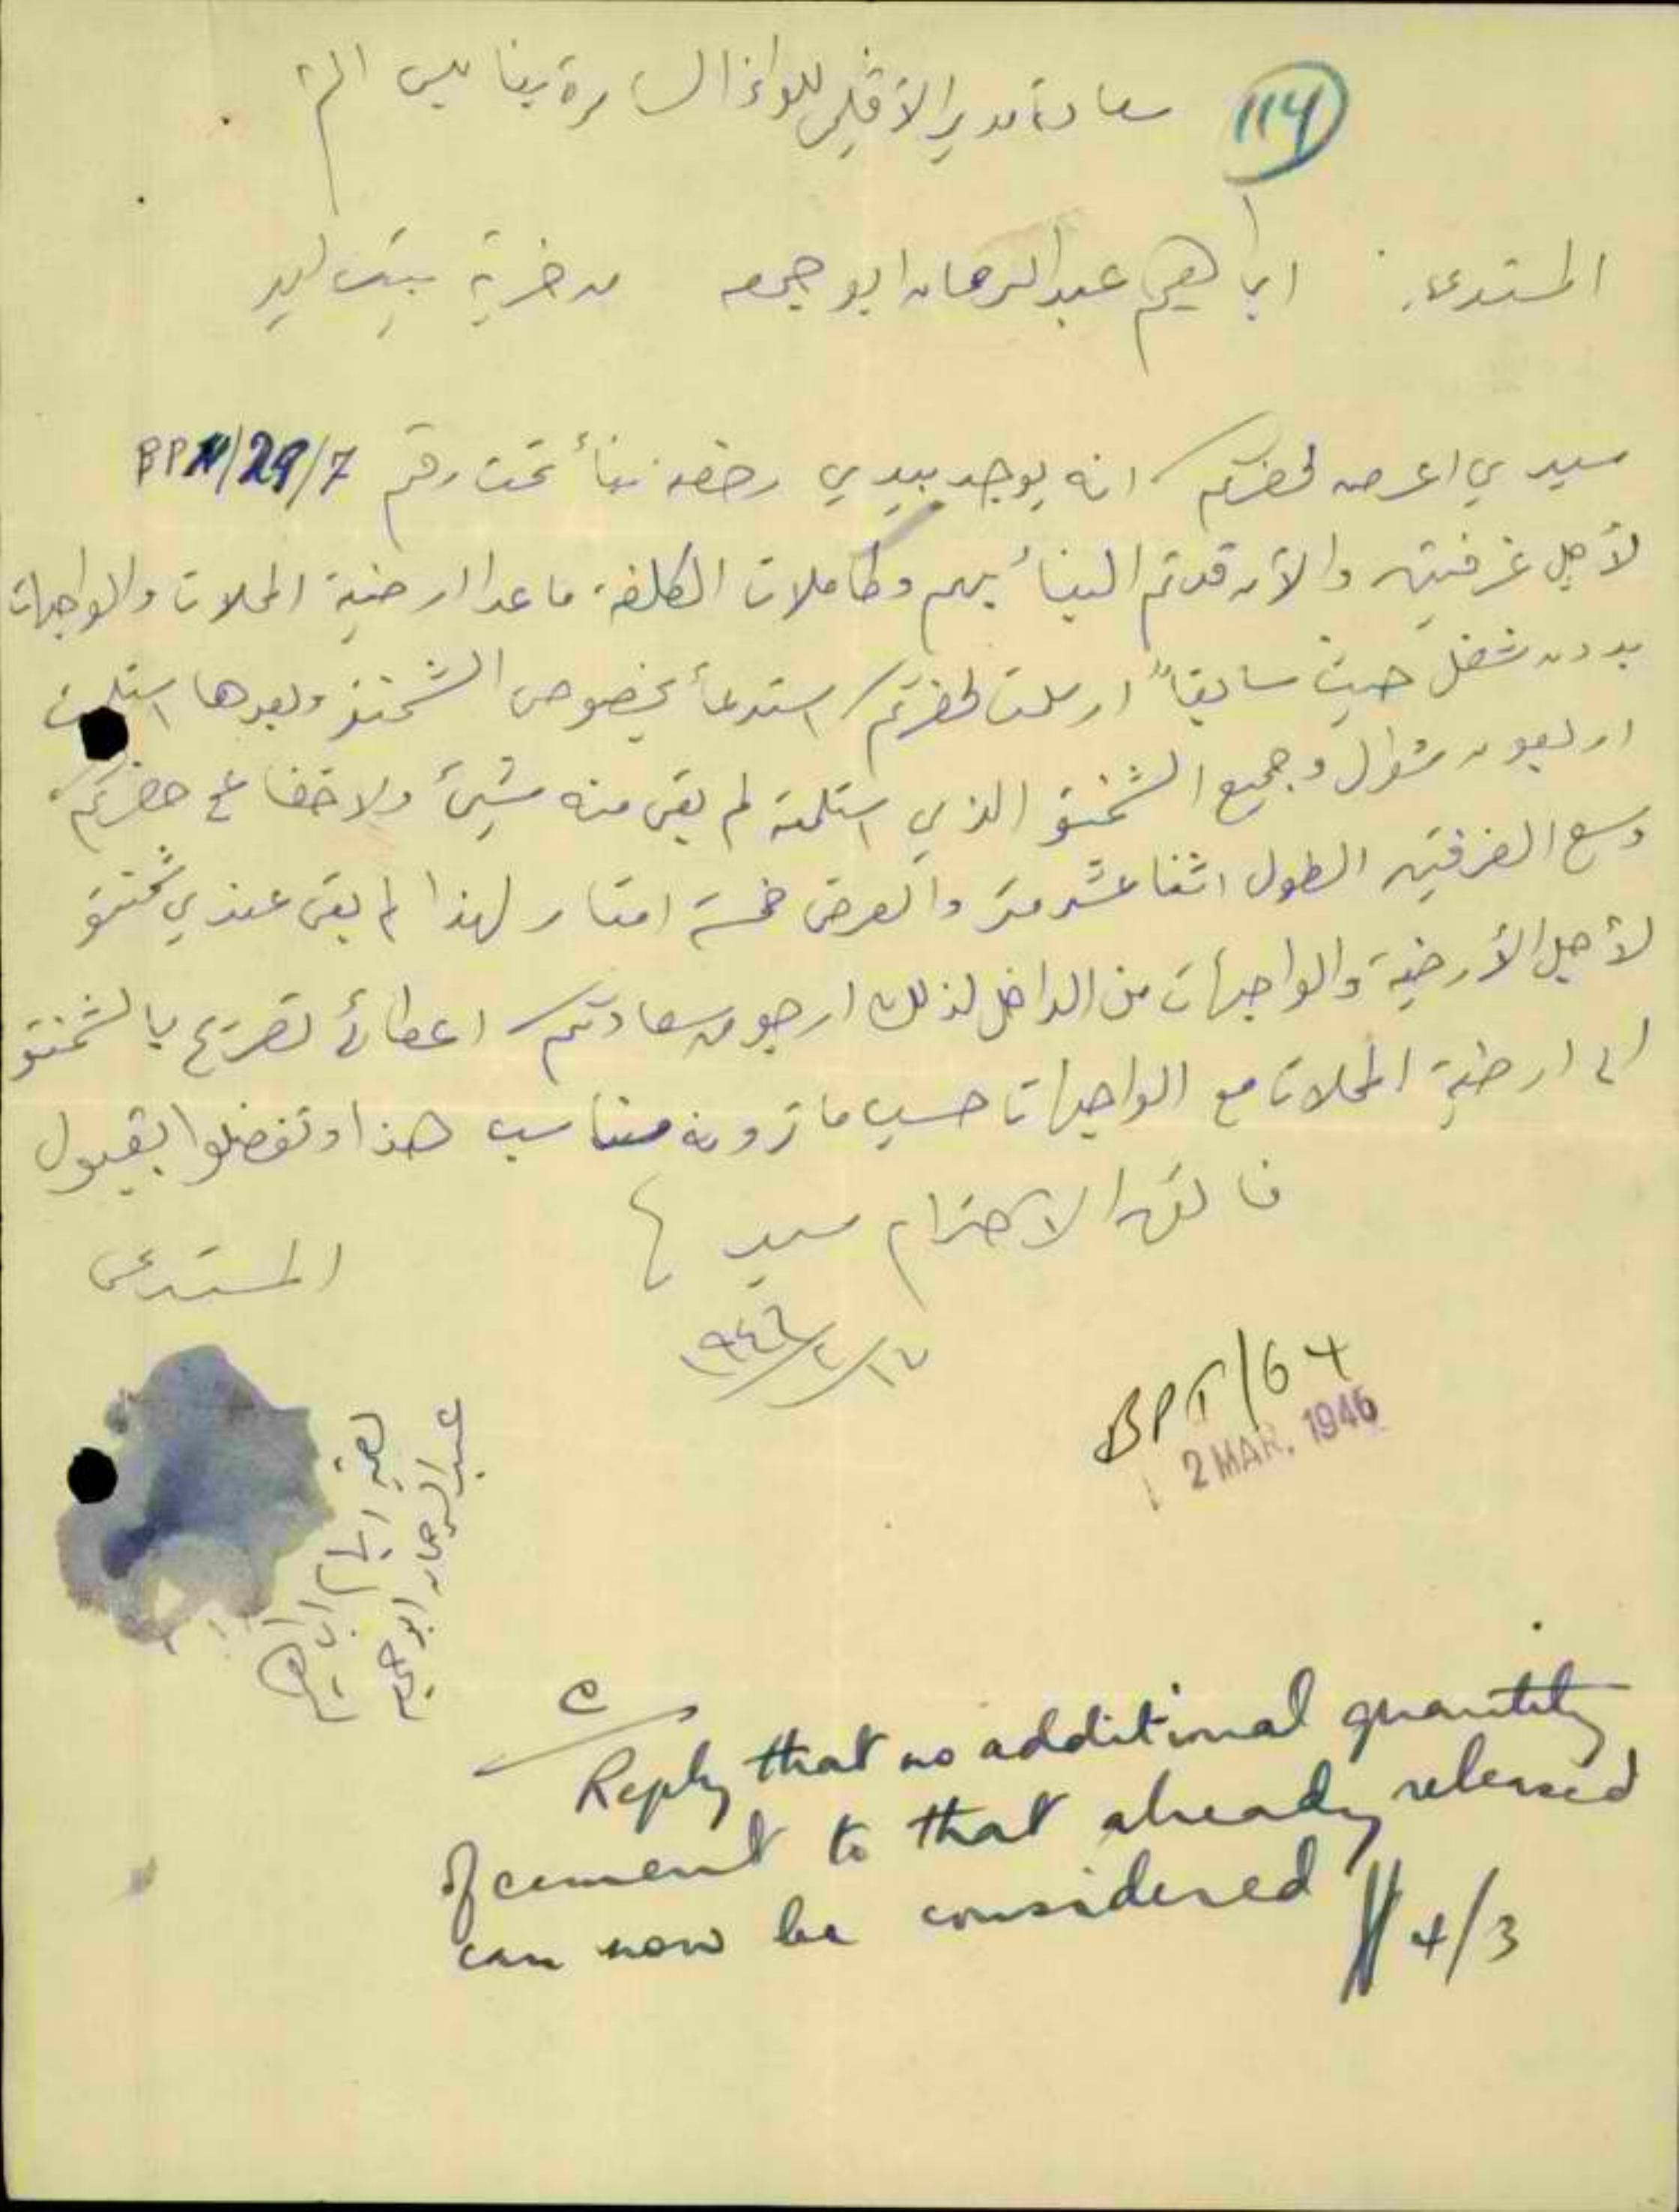 114
سعادة مدير الاقليمي للواء السامرة بنابلس
المستدعي: ابراهيم عبد الرحمان ابو جمعه من خربة بيت ليد
سيدي اعرض لحضرتكم انه يوجد بيدي رخصه بنأ تحت رقم BP11/29/7
لأجل غرفتين والآن قد تم البنأ بهم وكاملات الكلفة ما عدا ارضية المحلات والواجهات
بدون شغل حيث سابقاً ارسلت لحضرتكم استدعأ بخصوص الشمنتو وبعدها استلمت
اربعون شوال وجميع الشمنتو الذي استلمته لم بقى منه شيئ ولا خفا ع حضرتكم
وسع الغرفتين الطول اثنا عشر متر والعرض خمسة امتار لهذا لم بقى عندي شمنتو
لأجل الأرضية والواجهات من الداخل لذلك ارجو من سعادتكم اعطائي تصريح بالشمنتو
الى ارضية المحلات مع الواجهات حسب ما ترونه مناسب هذا وتفضلوا بقبول
فائق الاحترام سيدي
المستدعي
١٩٤٦/٢/١٧
BPT/64
2 MAR. 1946
بصمة ابهام ابراهيم
عبد الرحمان ابو جمعه
Reply that no additional quantity
of cement to that already released
can now be considered
4/3